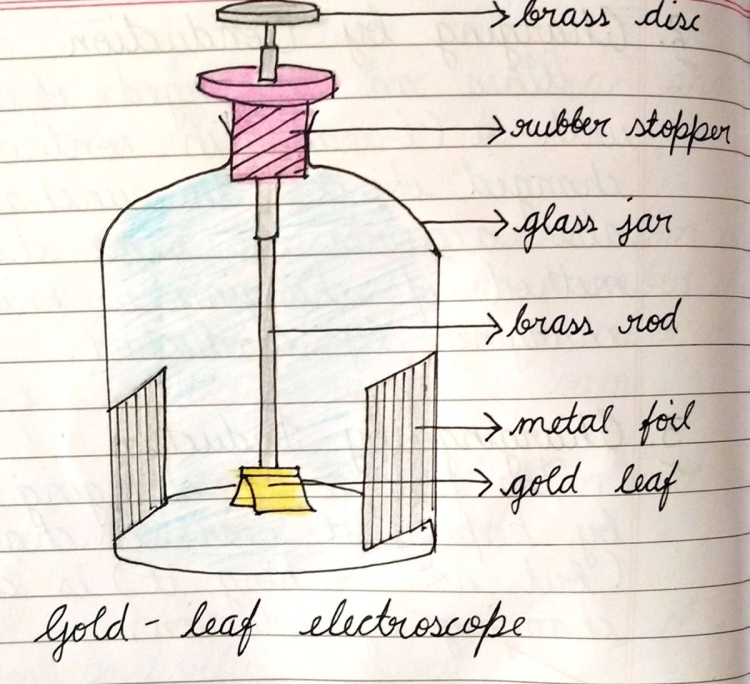 brass disc
rubber stopper
glass jar
brass rod
metal foil
gold leaf
Gold - leaf electroscope